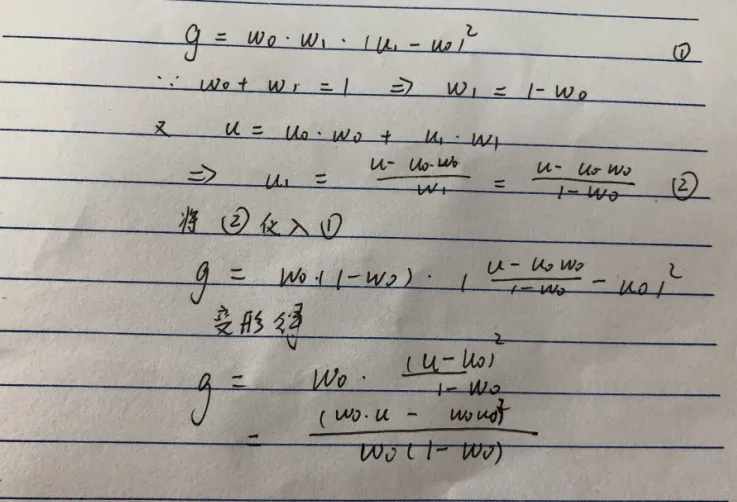 g = w0 · w1 · (u1 - u0)² ①
∵ w0 + w1 = 1 => w1 = 1 - w0
又 u = u0 · w0 + u1 · w1
=> u1 = (u - u0·w0)/w1 = (u - u0·w0)/(1 - w0) ②
将 ② 代入 ①
g = w0 · (1 - w0) · ((u - u0 w0)/(1 - w0) - u0)²
变形得
g = w0 · (u - u0)²/(1 - w0)
= (w0·u - w0u0)²/(w0(1 - w0))